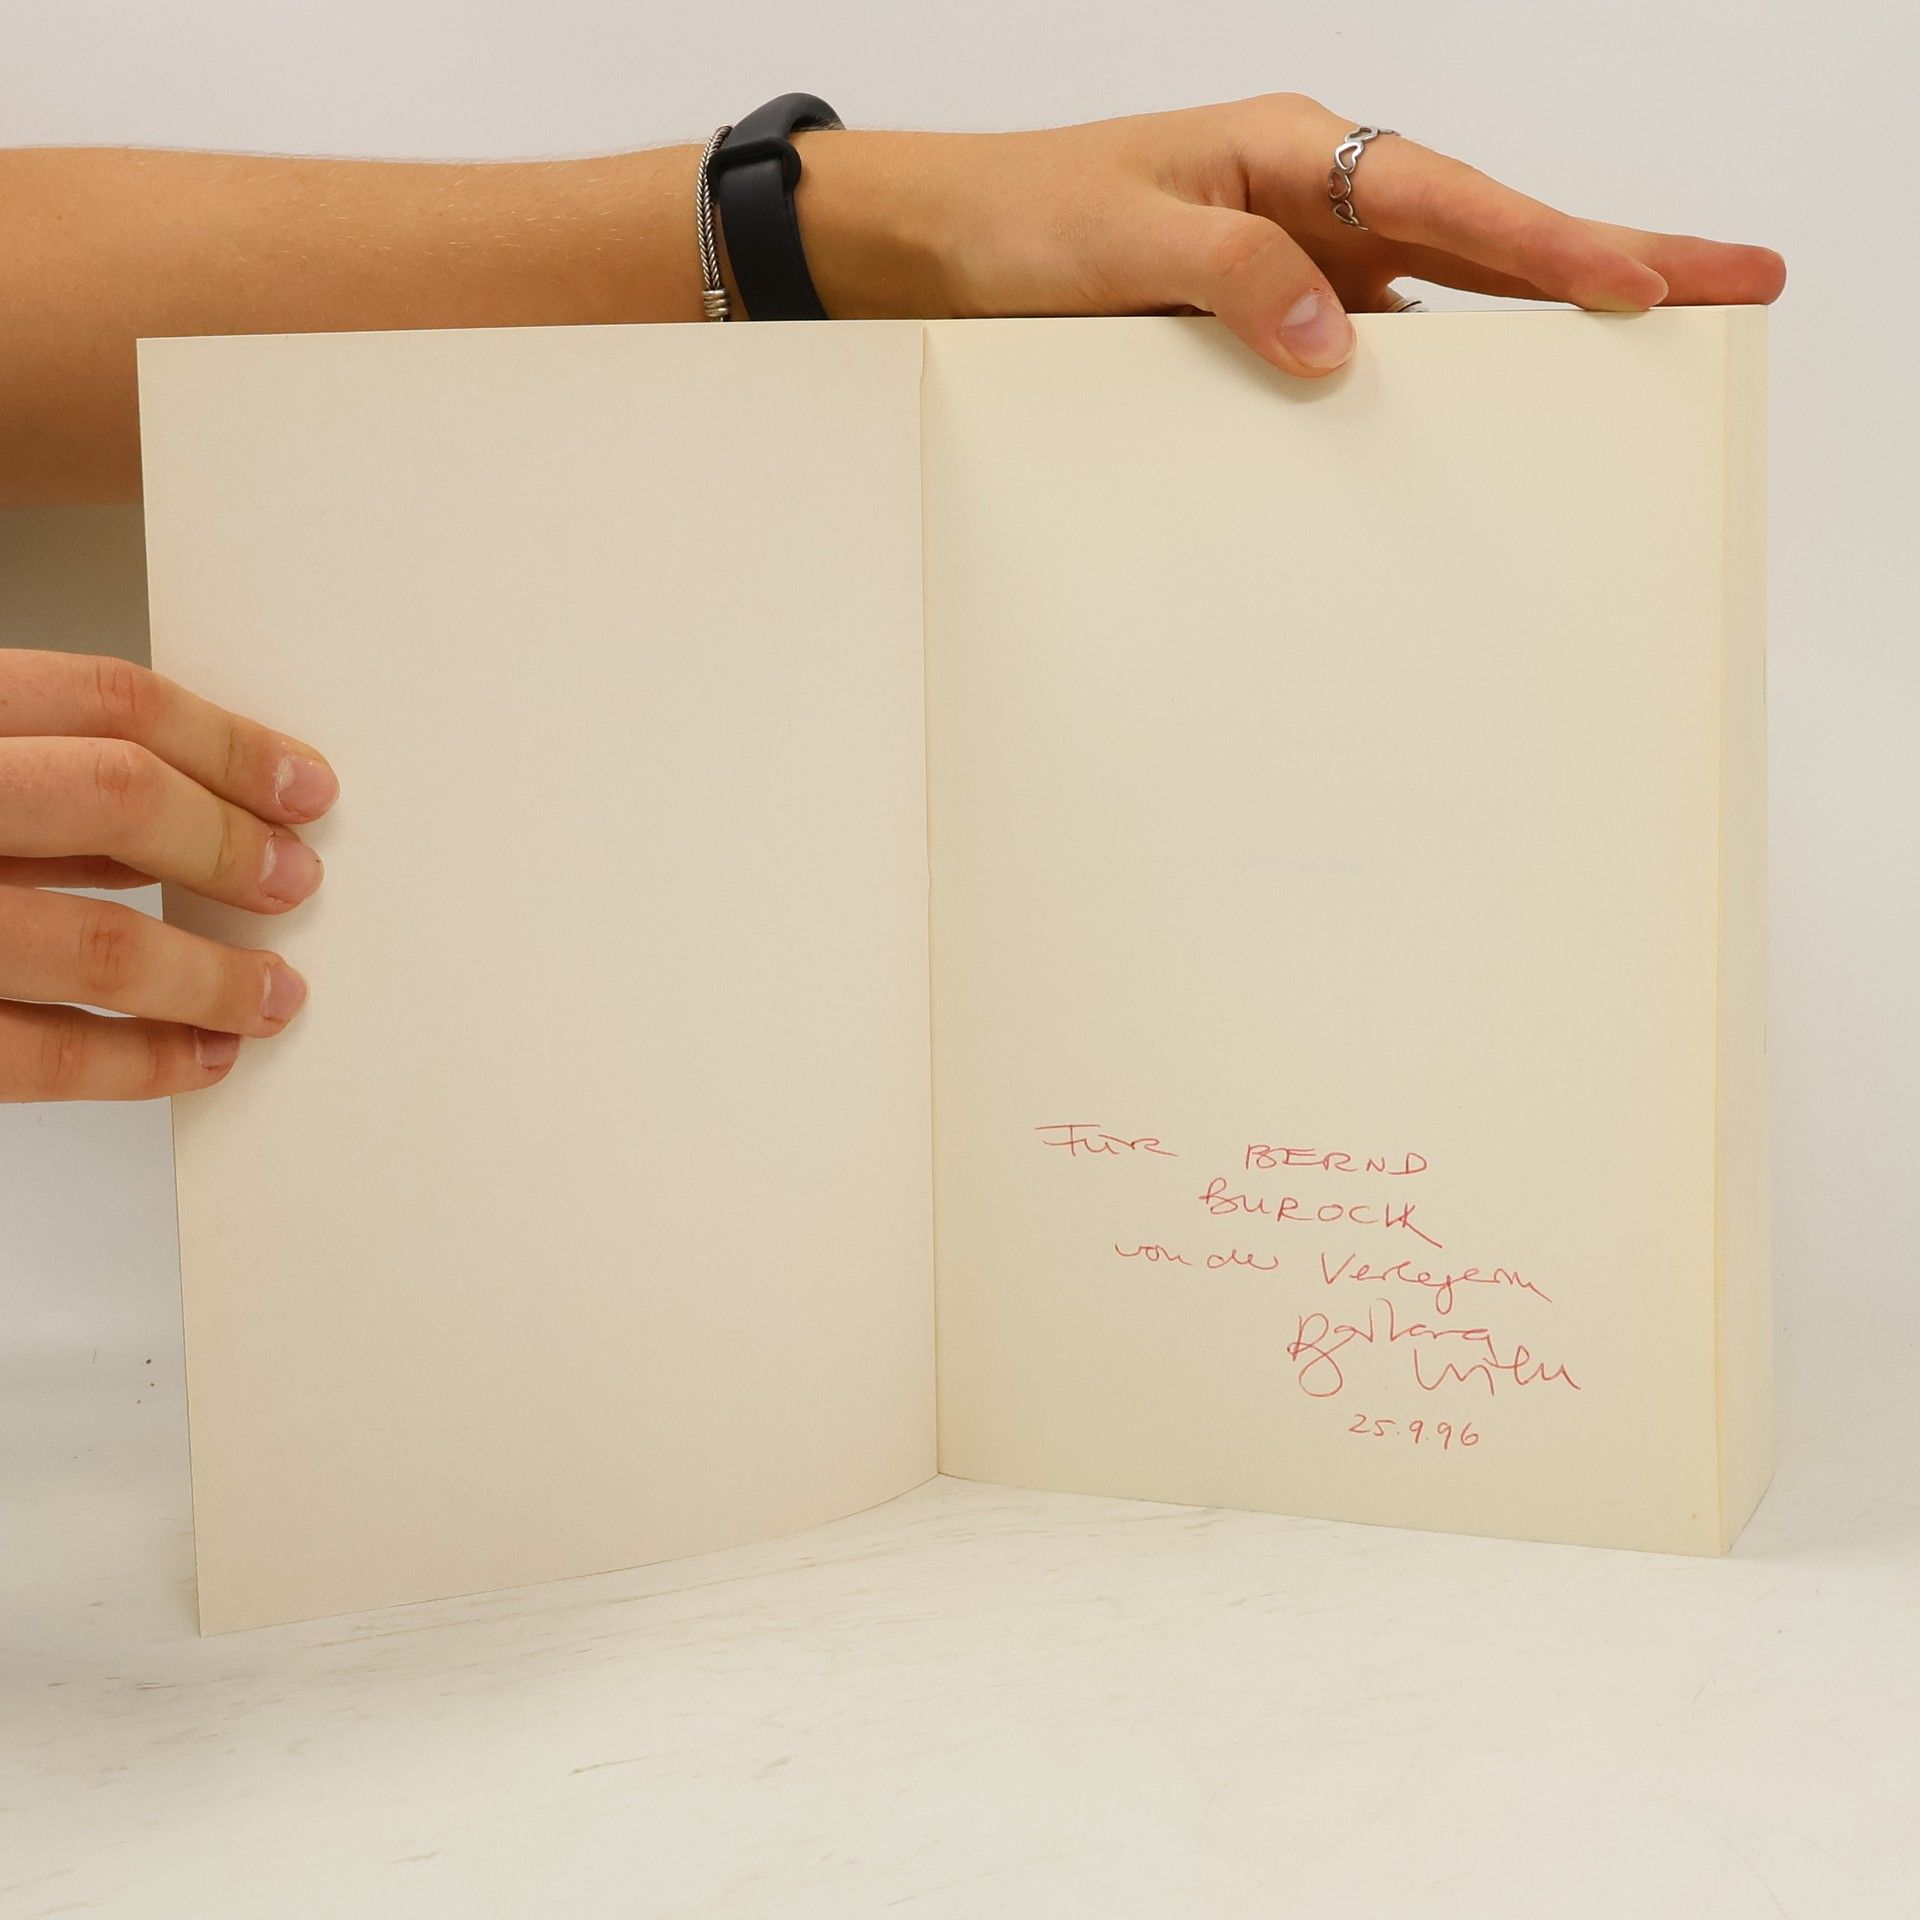 FÜR BERND
BUROCK
von der Verlegerin
Barbara
25.9.96